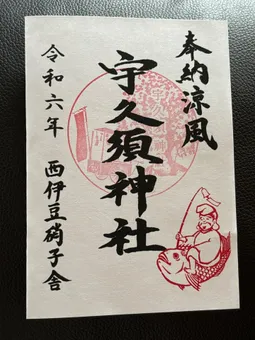 奉納涼風
宇久須神社
令和六年
西伊豆硝子舎